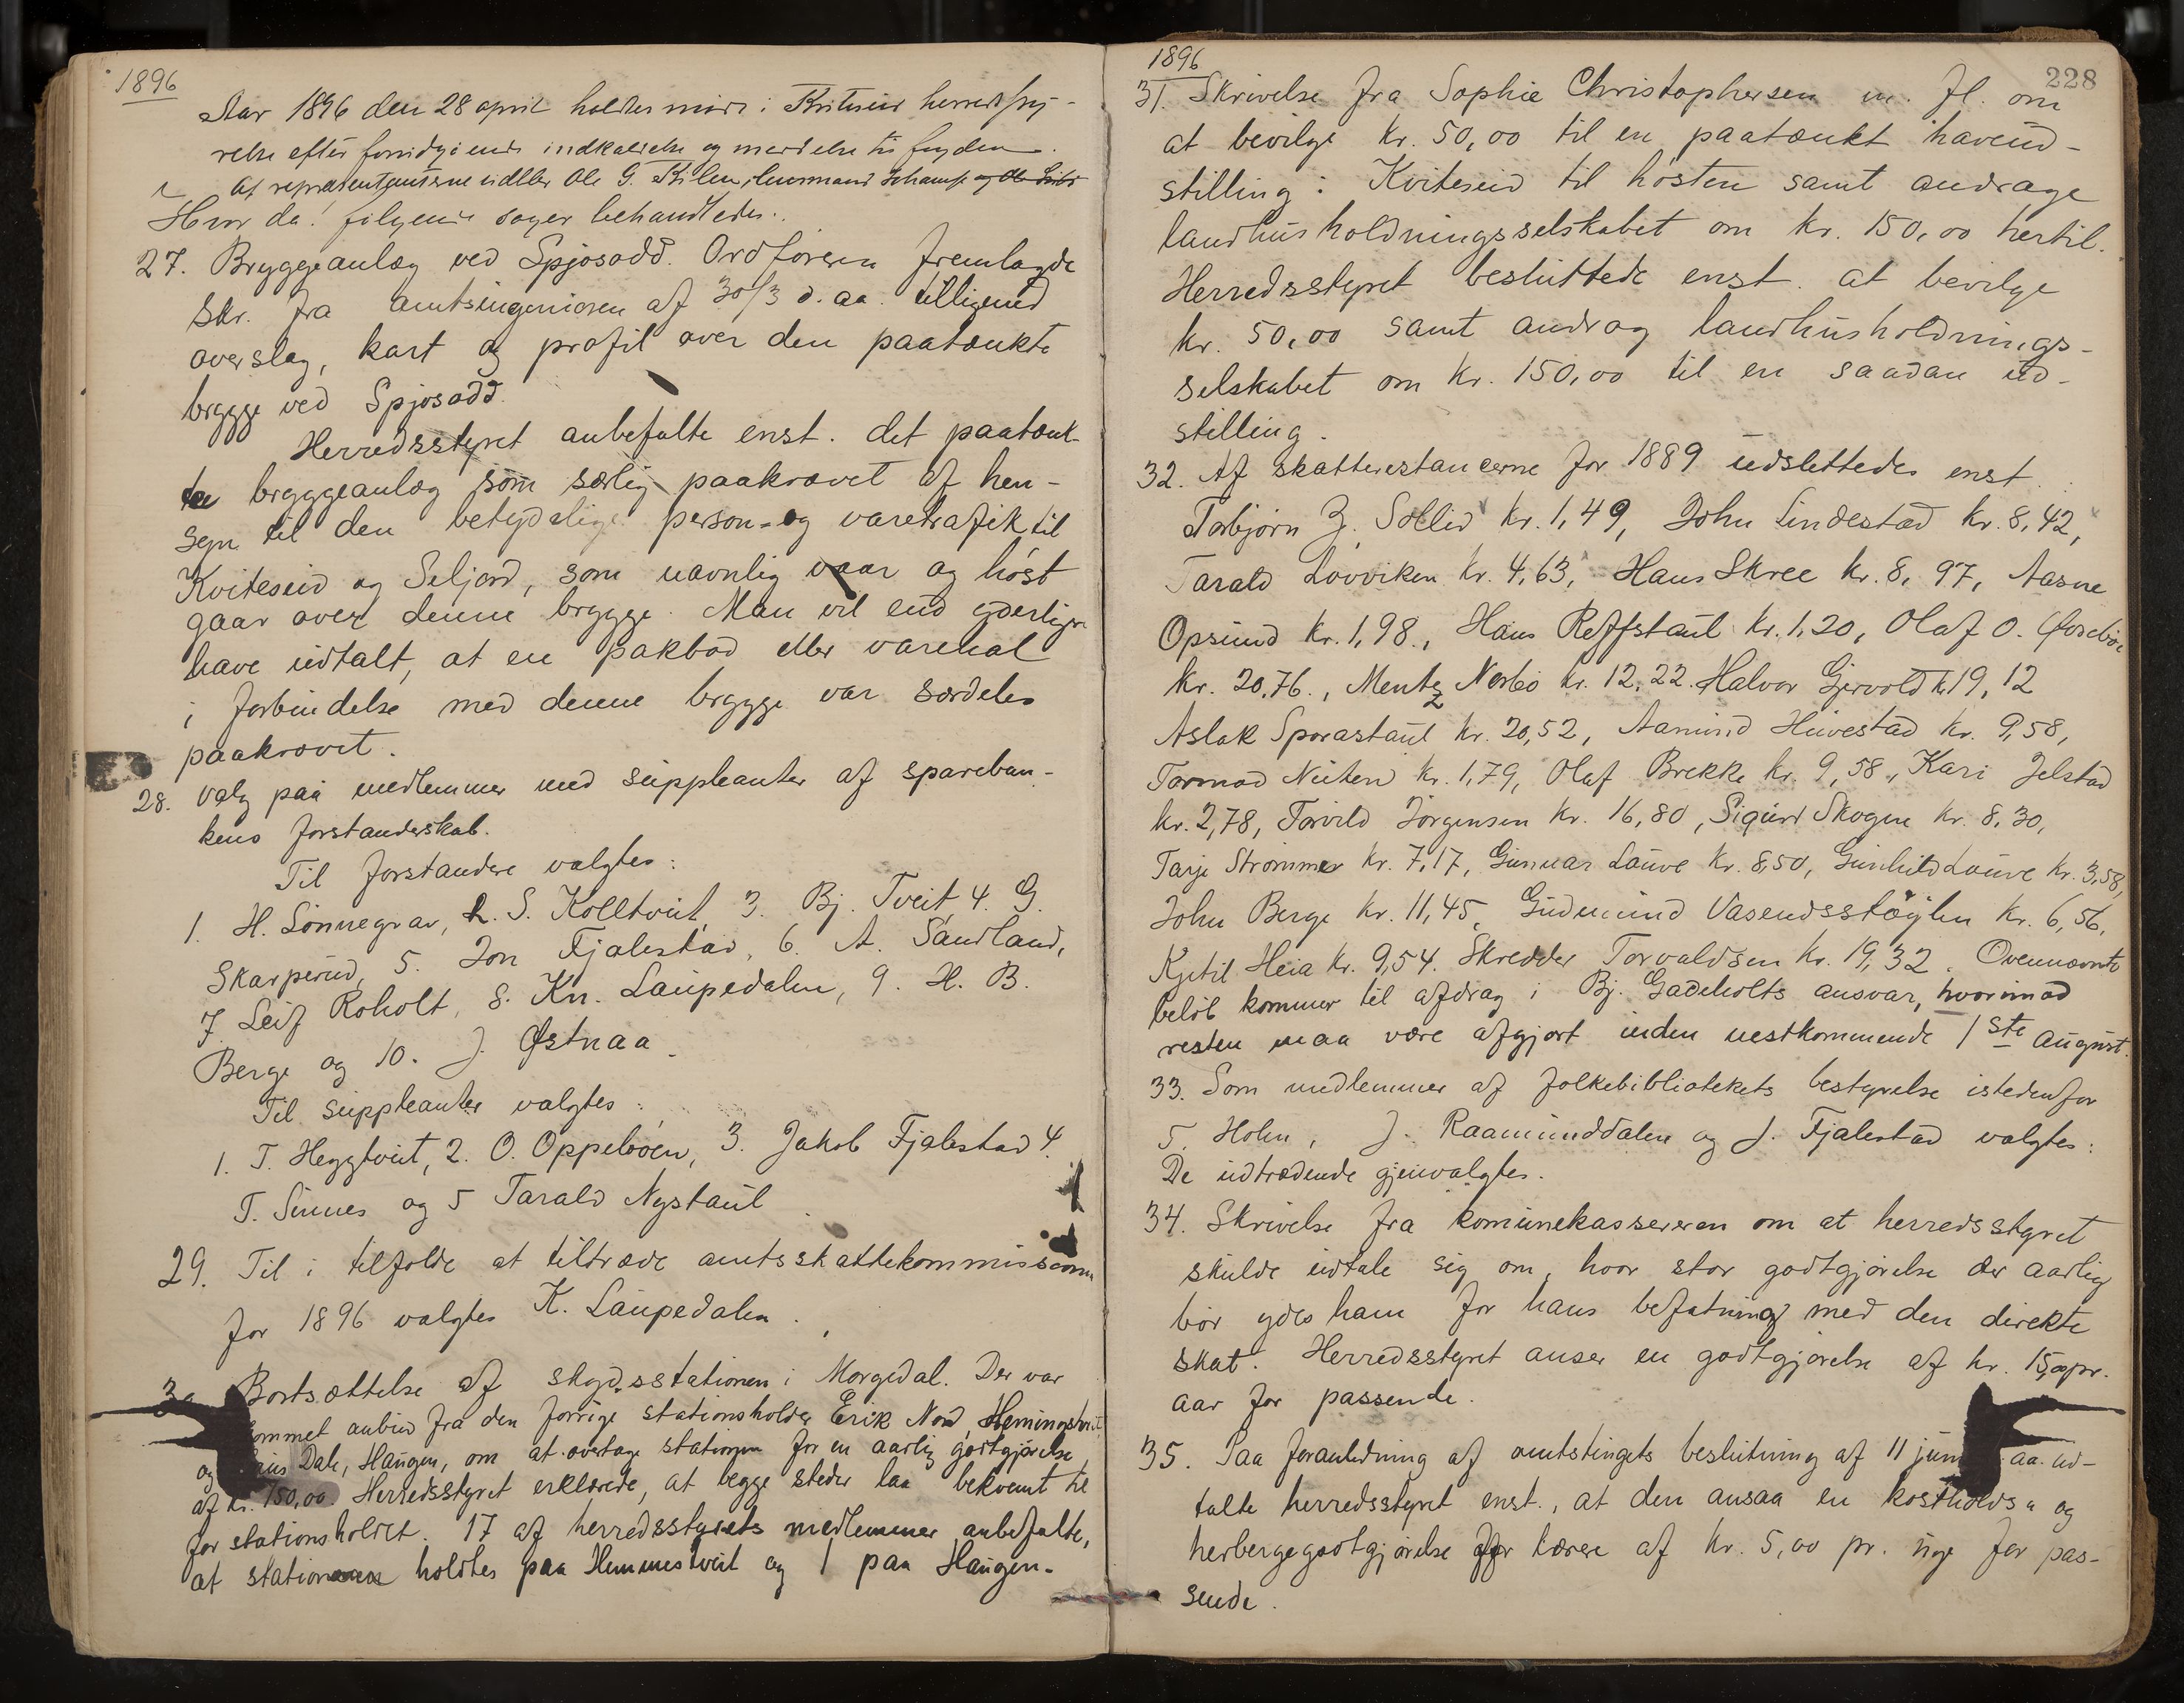 1896
Aar 1896 den 28 april holdtes møde i Kviteseid herredssty-
relse efter forudgaaende indkaldelse og meddelelse til fogden.
Af repræsentanterne udebler Ole G. Kilen, lensmand Schamp. og Ole
Hvor da! følgende sager behandledes.
27. Bryggeanlæg ved Spjosodd. Ordføreren fremlagde
skr. fra amtsingeniøren af 30/3 d. aa. tilligemed
overslag, kart og profil over den paatænkte
brygge ved Spjosodd.
Herredsstyret anbefalte enst. det paatænk-
te bryggeanlæg som særlig paakrævet af hen-
syn til den betydelige person- og varetrafik til
Kviteseid og Seljord, som navnlig vaar og høst
gaar over denne brygge. Man vil end yderligere
have udtalt, at en pakbod eller varehal
i forbindelse med denne brygge var særdeles
paakrævet.
28. Valg paa medlemmer med suppleanter af spareban-
kens forstanderskab.
Til forstandere valgtes:
1. H. Lønnegrav, 2. S. Kolltveit, 3. Bj. Tveit, 4. G.
Skarperud, 5. Jon Fjalestad, 6. A. Sandland,
7 Leif Roholt, 8. Kn. Laupedalen, 9. H. B.
Berge og 10. J. Østnaa.
Til suppleanter valgtes:
1. T. Heggtveit, 2. O. Oppebøen, 3. Jakob Fjalestad 4.
T. Sinnes og 5 Tarald Nystaul
29. Til i tilfælde at tiltræde amtsskattekommissionen
for 1896 valgtes K. Laupedalen.
30 Bortsættelse af skydsstationen i Morgedal. Der var
kommet anbud fra den forrige stationsholder Erik Nord, Hemingstveit
og Dale, Haugen, om at overtage stationen for en aarlig godtgjørelse
af kr. 150,00. Herredsstyret erklærede, at begge steder laa bekvemt til
for stationsholdet. 17 af herredsstyrets medlemmer anbefalte,
at stationen holdtes paa Hemmestveit og 1 paa Haugen.
1896
228
31. Skrivelse fra Sophie Christophersen m. fl. om
at bevilge kr. 50,00 til en paatænkt haveud-
stilling i Kviteseid til høsten samt andrage
landhusholdningsselskabet om kr. 150,00 hertil.
Herredsstyret besluttede enst. at bevilge
kr. 50,00 samt andrag landhusholdnings-
selskabet om kr. 150,00 til en saadan ud-
stilling.
32. Af skatterestancerne for 1889 udslettedes enst.
Torbjørn Z. Sollid kr. 1,49, John Lindestad kr. 8,42,
Tarald Lovviken kr. 4,63, Hans Skree kr. 8,97, Aasne
Opsund kr. 1,98, Hans Reffstaul kr. 1,20, Olaf O. Øvrebø
kr. 20,76., Mentz Norbø kr. 12,22. Halvor Gjervold kr 19,12
Aslak Sporastaul kr. 20,52, Aamund Huvestad kr. 9,58,
Tormod Nuten kr. 1,79, Olaf Brekke kr. 9,58, Kari Jelstad
kr. 2,78, Torvild Jørgensen kr. 16,80, Sigurd Skogen kr. 8,30,
Tarje Strømmer kr. 7,17, Gunnar Lauve kr. 8,50, Gunhild Lauve kr. 3,58,
John Berge kr. 11,45, Gudmund Vasendsstøylen kr. 6,56,
Kjetil Heia kr. 9,54. Skredder Torvaldsen kr. 19,32. Ovennævnte
beløb kommer til afdrag i Bj. Gadeholts ansvar, hvorimod
resten maa være afgjort inden nestkommende 1ste august.
33. Som medlemmer af folkebibliotekets bestyrelse istedenfor
T. Holm, J. Raamunddalen og J. Fjalestad valgtes:
De udtrædende gjenvalgtes.
34. Skrivelse fra komunekassereren om at herredsstyret
skulde udtale sig om, hvor stor godtgjørelse der aarlig
bør ydes ham for hans befatning med den direkte
skat. Herredsstyret anser en godtgjørelse af kr. 15,00 pr.
aar for passende.
35. Paa foranledning af amtstingets beslutning af 11 juni aa. ud-
talte herredsstyret enst., at den ansaa en kostholds- og
herbergegodtgjørelse for lærere af kr. 5,00 pr. uge for pas-
sende.